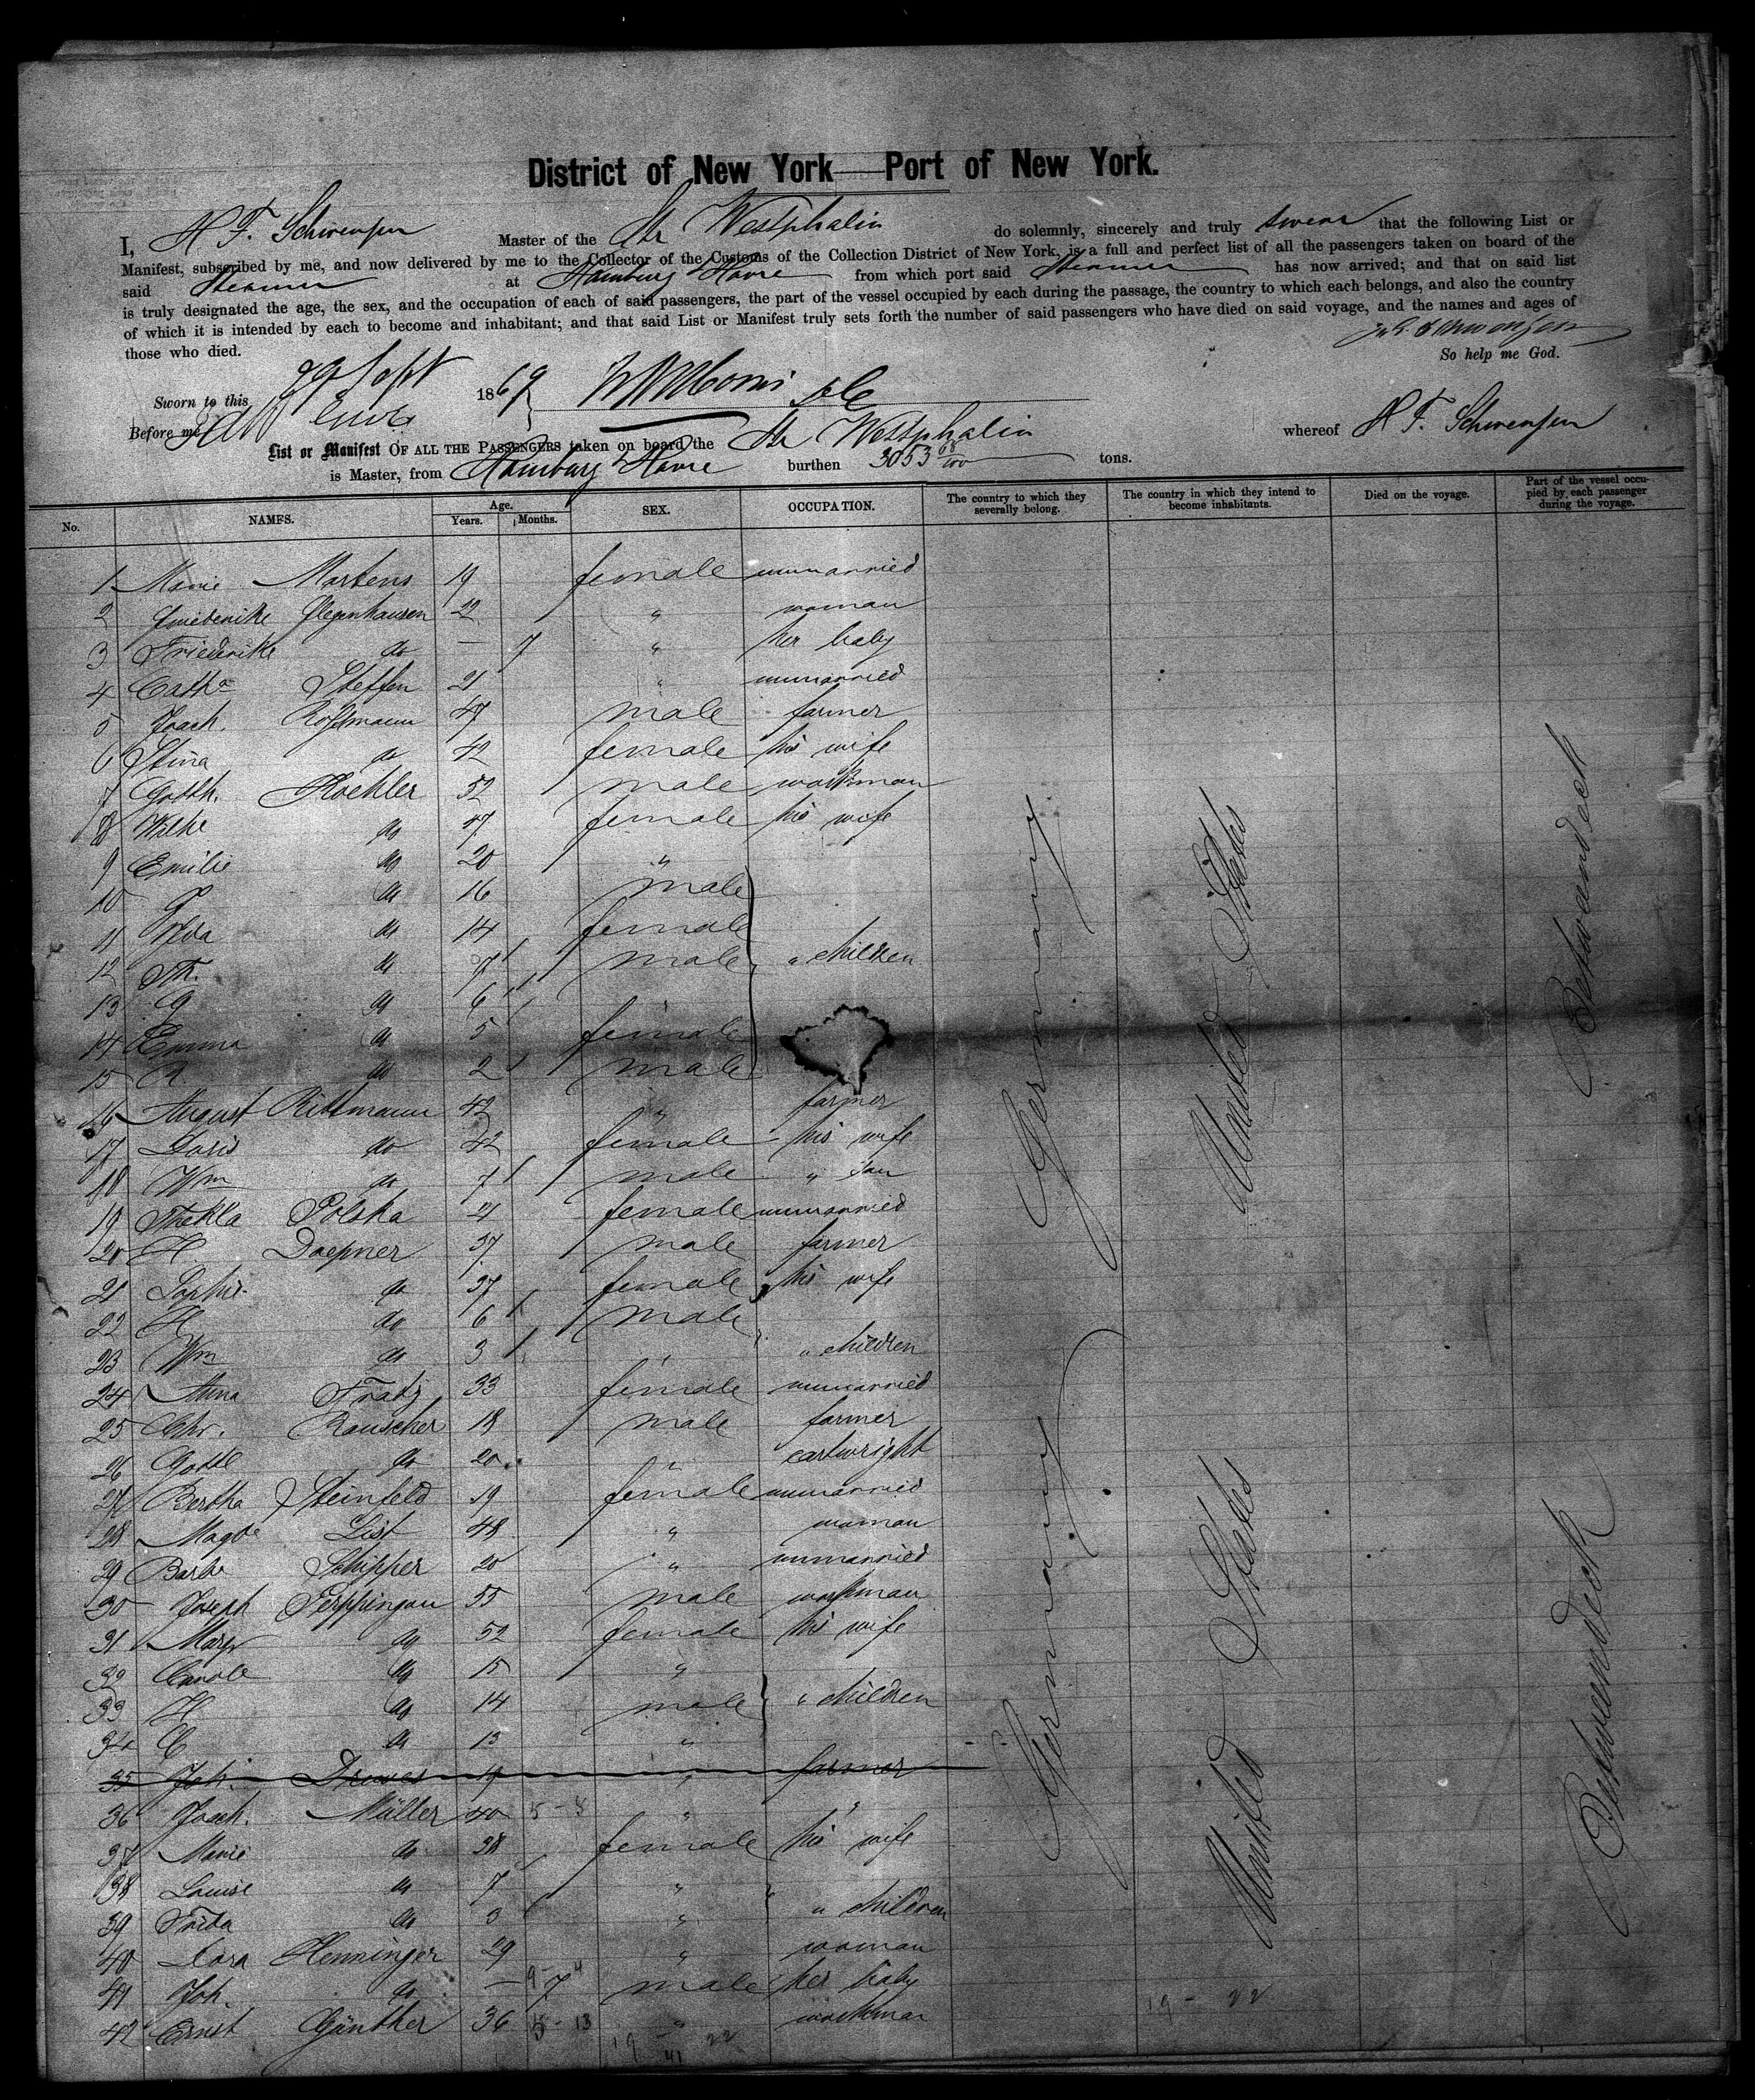 District of New York—Port of New York.
I, H F. Schwensen Master of the Str Westphalia do solemnly, sincerely and truly swear that the following List or
Manifest, subscribed by me, and now delivered by me to the Collector of the Customs of the Collection District of New York, is a full and perfect list of all the passengers taken on board of the
said Steamer at Hamburg & Havre from which port said Steamer has now arrived; and that on said list
is truly designated the age, the sex, and the occupation of each of said passengers, the part of the vessel occupied by each during the passage, the country to which each belongs, and also the country
of which it is intended by each to become and inhabitant; and that said List or Manifest truly sets forth the number of said passengers who have died on said voyage, and the names and ages of
those who died.
So help me God.
Sworn to this 29 Sept 1869
Before me
List or Manifest OF ALL THE PASSENGERS taken on board the Str Westphalia whereof H F. Schwensen
is Master, from Hamburg & Havre burthen 3053 68/100 tons.
No. NAMES. Age. Years. Months. SEX. OCCUPATION. The country to which they severally belong. The country in which they intend to become inhabitants. Died on the voyage. Part of the vessel occupied by each passenger during the voyage.
1 Marie Martens 19 female unmarried
2 Friederike 22 " woman
3 Friederike do — 7 " her baby
4 Catha Steffen 21 " unmarried
5 Joach. Roffmann 47 male farmer
6 Stina do 42 female his wife
7 Gotth. Koehler 52 male workman
8 Wilhe do 47 female his wife
9 Emilie do 20 "
10 do 16 male
11 do 14 female
12 Th. do 7 male " children
13 G do 6 "
14 Emma do 5 female
15 A. do 2 male
16 August Rittmann 42 " farmer
17 Doris do 42 female his wife
18 Wm do 7 male " son
19 Thekla Polska 21 female unmarried
20 H Doepner 37 male farmer
21 Sophie do 37 female his wife
22 H do 6 male
23 Wm do 3 " " children
24 Anna Fratz 33 female unmarried
25 Chr. Rauscher 18 male farmer
26 Gottl do 20 " cartwright
27 Bertha Steinfeld 19 female unmarried
28 Magde List 48 " woman
29 Barba Schipper 20 " unmarried
30 Joseph 55 male workman
31 Margr do 52 female his wife
32 Carole do 15 "
33 H do 14 male " children
34 C do 13 "
35 Joh. Drewes 19 " farmer
36 Joach. Müller 40 " "
37 Marie do 38 female his wife
38 Louise do 7 "
39 Frida do 3 " " children
40 Dora Henninger 29 " woman
41 Joh. do — 7 male her baby
42 Ernst Günther 36 " workman
Germany
United States
Betweendeck
Germany
United States
Betweendeck